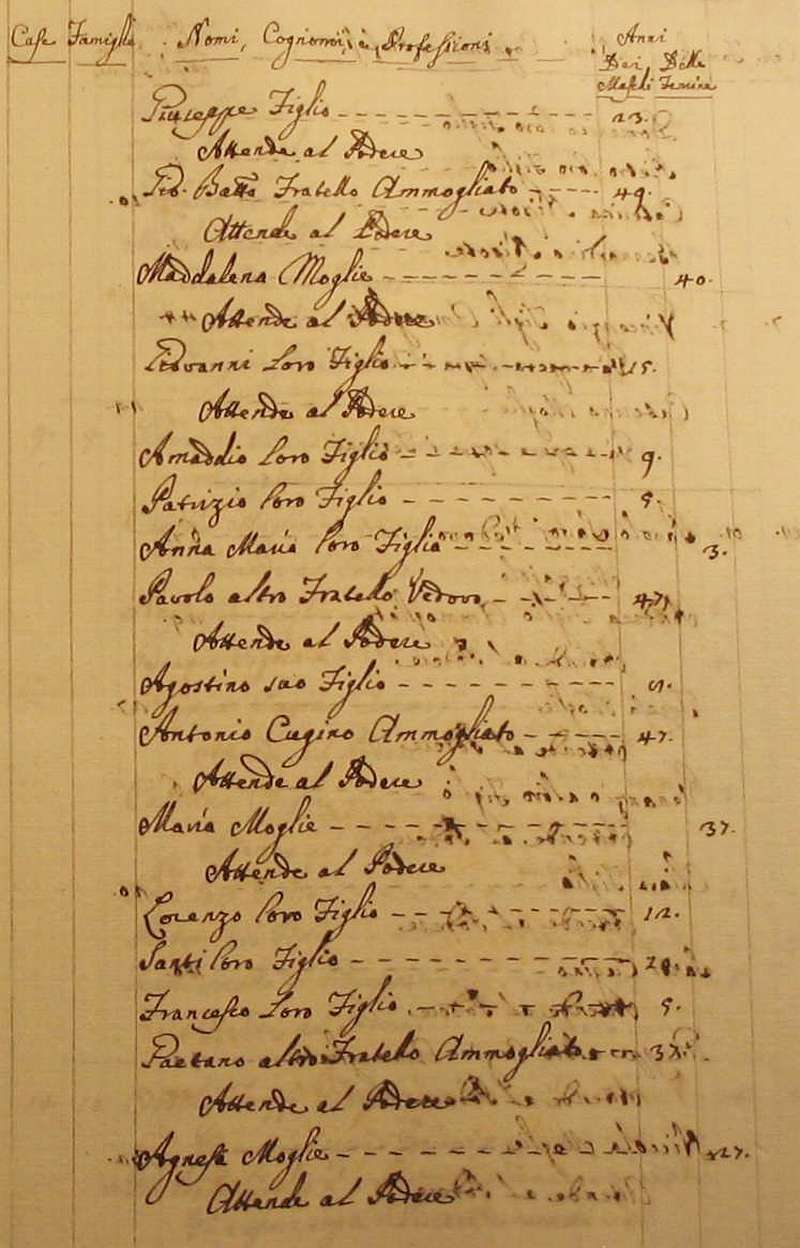 Case Famiglie Nomi, Cognomi, e Professioni Anni
Dei Delle
Maschi Femine
Giuseppe Figlio 23.
Attende al Podere
Gio. Batta Fratello Ammogliato 49.
Attende al Podere
Maddalena Moglie 40.
Attende al Podere
Giovanni loro Figlio 15.
Attende al Podere
Amaddio loro Figlio 9.
Patrizio loro Figlio 5.
Anna Maria loro Figlia 3.
Pavolo altro Fratello Vedovo 47.
Attende al Podere
Agostino suo Figlio
Antonio Cugino Ammogliato 47.
Attende al Podere
Maria Moglie 37.
Attende al Podere
Lorenzo loro Figlio 12.
Santi loro Figlio
Francesco loro Figlio 5.
Gaetano altro Fratello Ammogliato
Attende al Podere
Agnese Moglie 27.
Attende al Podere